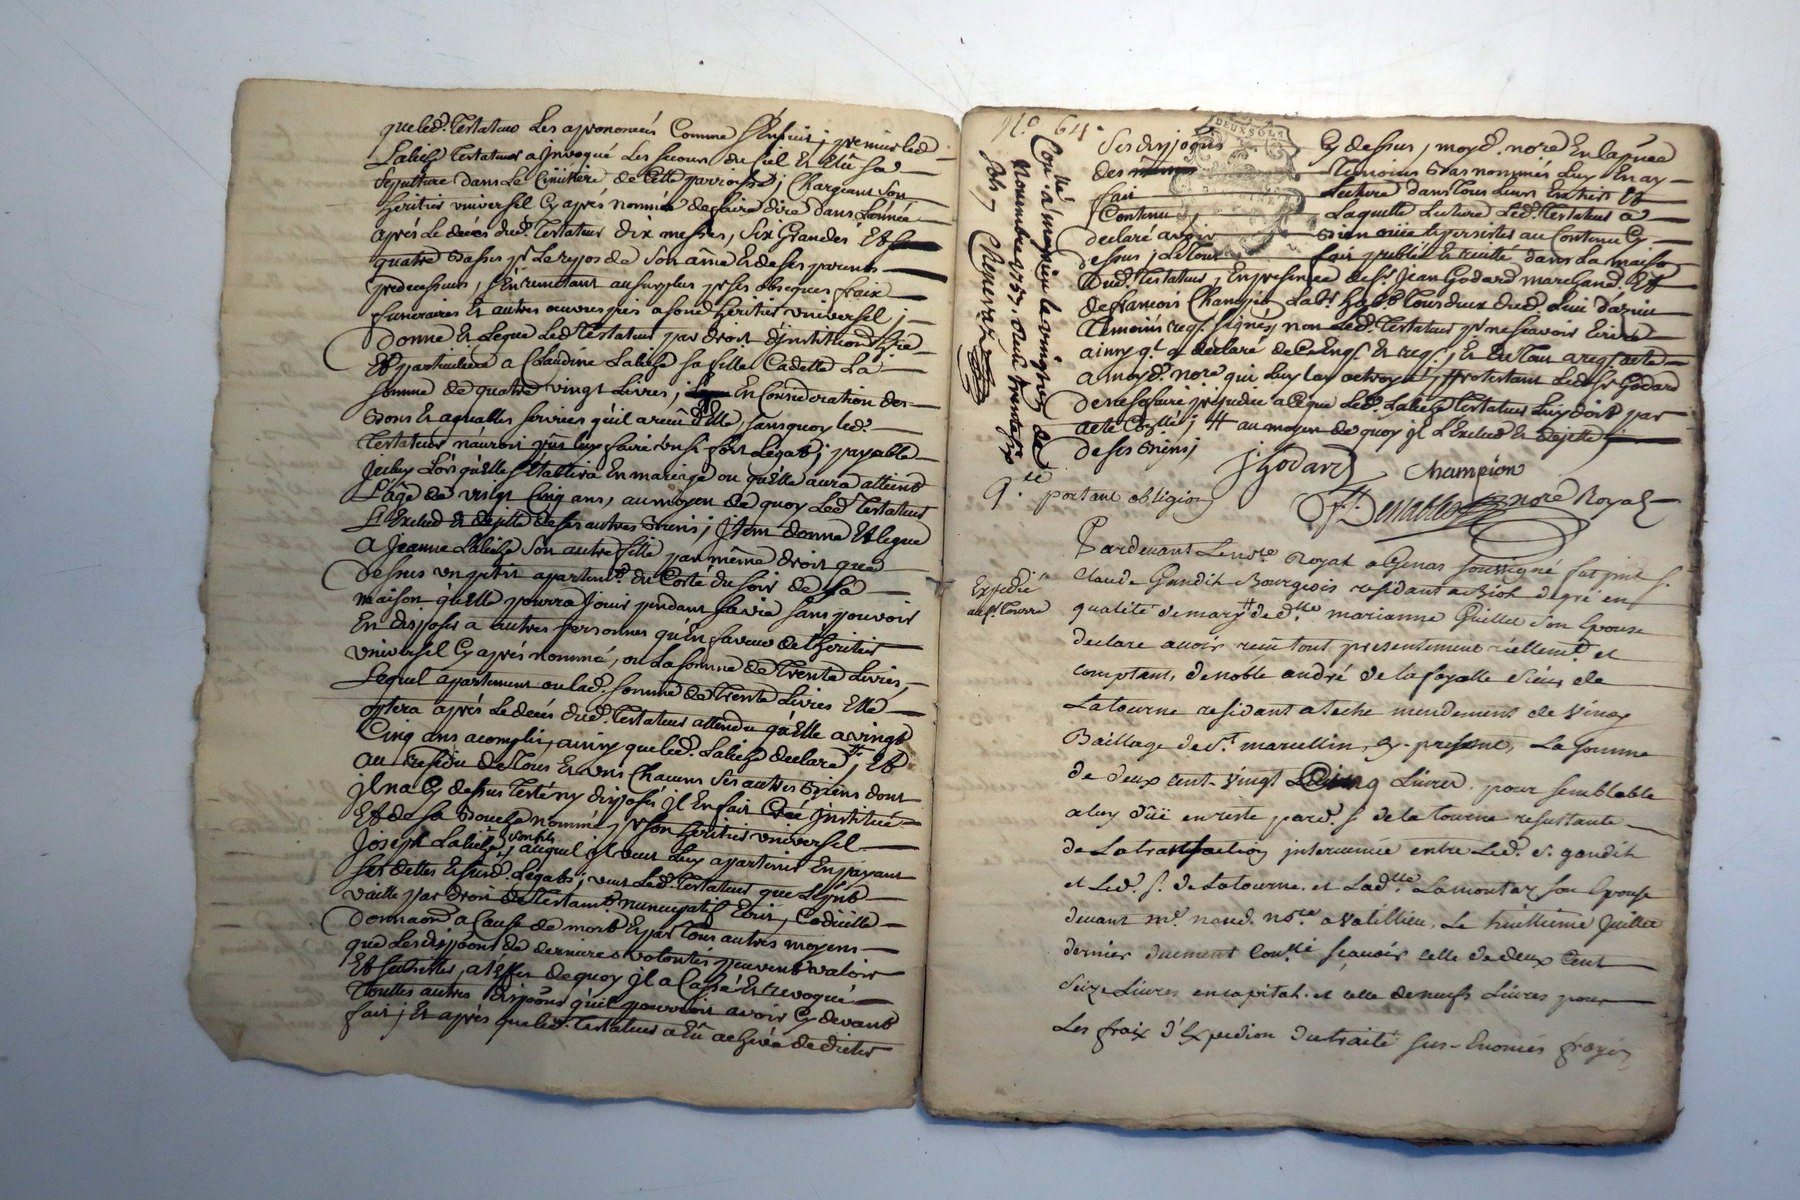 que led. testateur les a prononcés comme s'ensuit; premier led.
Labieze testateur a invoqué les secours du ciel et élû sa
sepulture dans le Cimittiere de cette parroisse; Chargeant son
heritier universel cy après nommé de faire dire dans l'année
après le decès dud. testateur dix messes, six Grandes et
quatre basses pr. le repos de son âme et de ses parents
predecesseurs, s'en remettant au surplus pr ses obseques fraix
funeraires et autres œuvres pies a sond. heritier universel;
Donne et legue led. testateur par droit d'institution
et particuliere a Claudine Labieze sa fille Cadette la
somme de quatre vingt livres; en Consideration des
bons et agreables services qu'il a reçû d'elle, sans quoy led.
testateur n'auroit pas faire un si fort Légat; payable
lors qu'elle s'Etablira en mariage ou qu'elle aura atteint
l'âge de vingt Cinq ans, au moyen de quoy led. testateur
l'Exclud et dejette de ses autres biens; Jtem donne et legue
a Jeanne Labieze son autre fille par même droit que
dessus un petit apartemt. du Costé du soir de sa
maison qu'elle pourra jouir pendant sa vie sans pouvoir
en disposer a autres personnes qu'en faveur de l'heritier
universel cy après nommé, ou la somme de trente livres,
Lequel apartement ou lad. somme de trente livres Elle
optera après le decès dud. testateur attendu qu'Elle a vingt
Cinq ans acomplis, ainsy que led. Labieze declare; et
au residu de tous et uns Chacuns ses autres biens dont
il n'a cy dessus testé ny disposé il en fait Créé institué
et de sa bouche nommé pr son heritier universel
Joseph Labieze son fils, auquel il veut leur apartenir en payant
ses dettes et susd. Legats; veut led. testateur que le pnt
vaille par droit de testamt. nuncupatif Ecrit, Codicille
Donnaon a Cause de mort et par tous autres moyens
que les dispoons de dernieres volontés peuvent valoir
et subsister, a l'effet de quoy il a Cassé et revoqué
touttes autres dispoons qu'il pourroit avoir cy devant
fait; et après que led. testateur a eû achevé de dicter
No. 64.
ses dispoons cy dessus, moyd. nore. en la pnce
des temoins bas nommés luy en ay
fait lecture dans tous leurs entiers et
Contenu, laquelle lecture led. testateur a
declaré avoir bien ouïe et persister au Contenu cy
dessus; le tout fait publié et recitté dans la maison
dud. testateur, en presence de sr. Jean Godard marchand et
de francois Champion labr. habt. tous deux dud. lieu d'azieu
temoins req. signés, non led. testateur pr. ne sçavoir Ecrire
ainsy qu'il a declaré de ce Enq. et req.; et du tout a req. acte
a moyd. nore qui luy l'ay octroyé; protestant led. sr. Godard
de ne se faire prejudice a ce que led. Labieze testateur luy doit par
acte; # au moyen de quoy il l'Exclud et dejette
de ses biens;
J Godard Champion
nore Royal
Conllé. a meyzieu le vingt six de
Novembre 1757. recu trente six
sols
Chenevaz
Qce. portant obligion
Expedié
au sr. Tourne
Pardevant le nore Royal a Genas soussigné fut pnt sr.
Claude Gandit Bourgeois residant a Biol de gré en
qualité de mary de dlle marianne Guillet son Epouse
declare avoir reçu tout presentement réellemt. et
comptant, de noble andré de la fayolle sieur de
Latourne residant a teche mendement de Vinay
Baillage de st. marcellin, cy-present, La somme
de deux cent vingt cinq Livres, pour semblable
a luy dûe en reste par d. sr. de la tourne resultante
de La transaction intervenue entre Led. sr. gandit
et Led. sr. de Latourne, et Ladlle. Lamontaz son Epouse
devant me. nore a Vatillieu, Le huittieme Juillet
dernier duement Conllé sçavoir celle de deux Cent
seize Livres en capital et celle de neuf Livres pour
Les fraix d'Expedion du traité sus-Enoncé